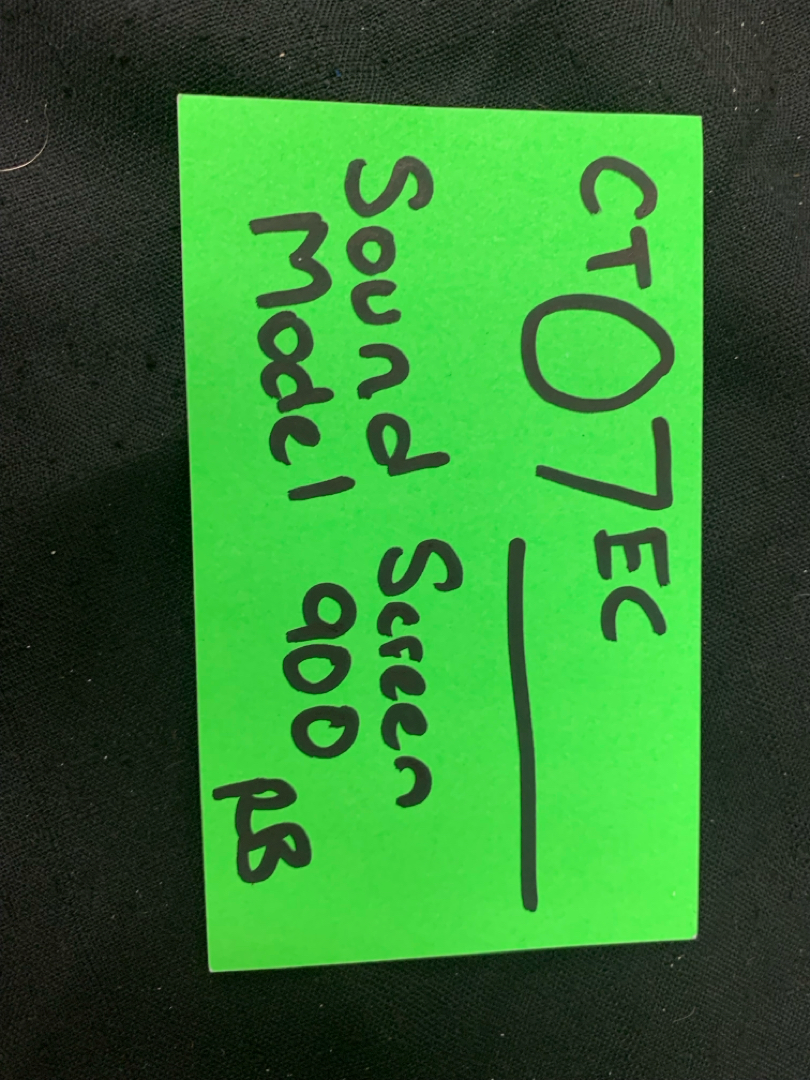 CT07EC
Sound Screen
Model 900
RB